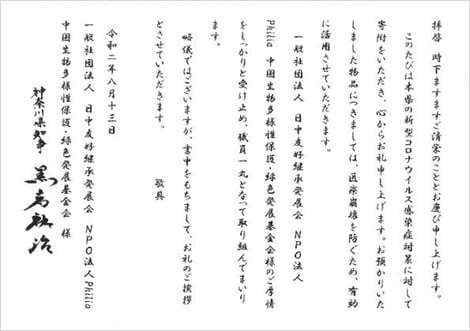 拝啓 時下ますますご清栄のこととお慶び申し上げます。
このたびは本県の新型コロナウイルス感染症対策に対して
寄附をいただき、心からお礼申し上げます。お預かりいた
しました物品につきましては、医療崩壊を防ぐため、有効
に活用させていただきます。
一般社団法人 日中友好継承発展会 NPO法人
Philia 中国生物多様性保護・緑色発展基金会様のご厚情
をしっかりと受け止め、職員一丸となって取り組んでまいり
ます。
略儀ではございますが、書中をもちまして、お礼のご挨拶
とさせていただきます。
敬具
令和二年八月十三日
一般社団法人 日中友好継承発展会 NPO法人Philia
中国生物多様性保護・緑色発展基金会 様
神奈川県知事 黒岩祐治